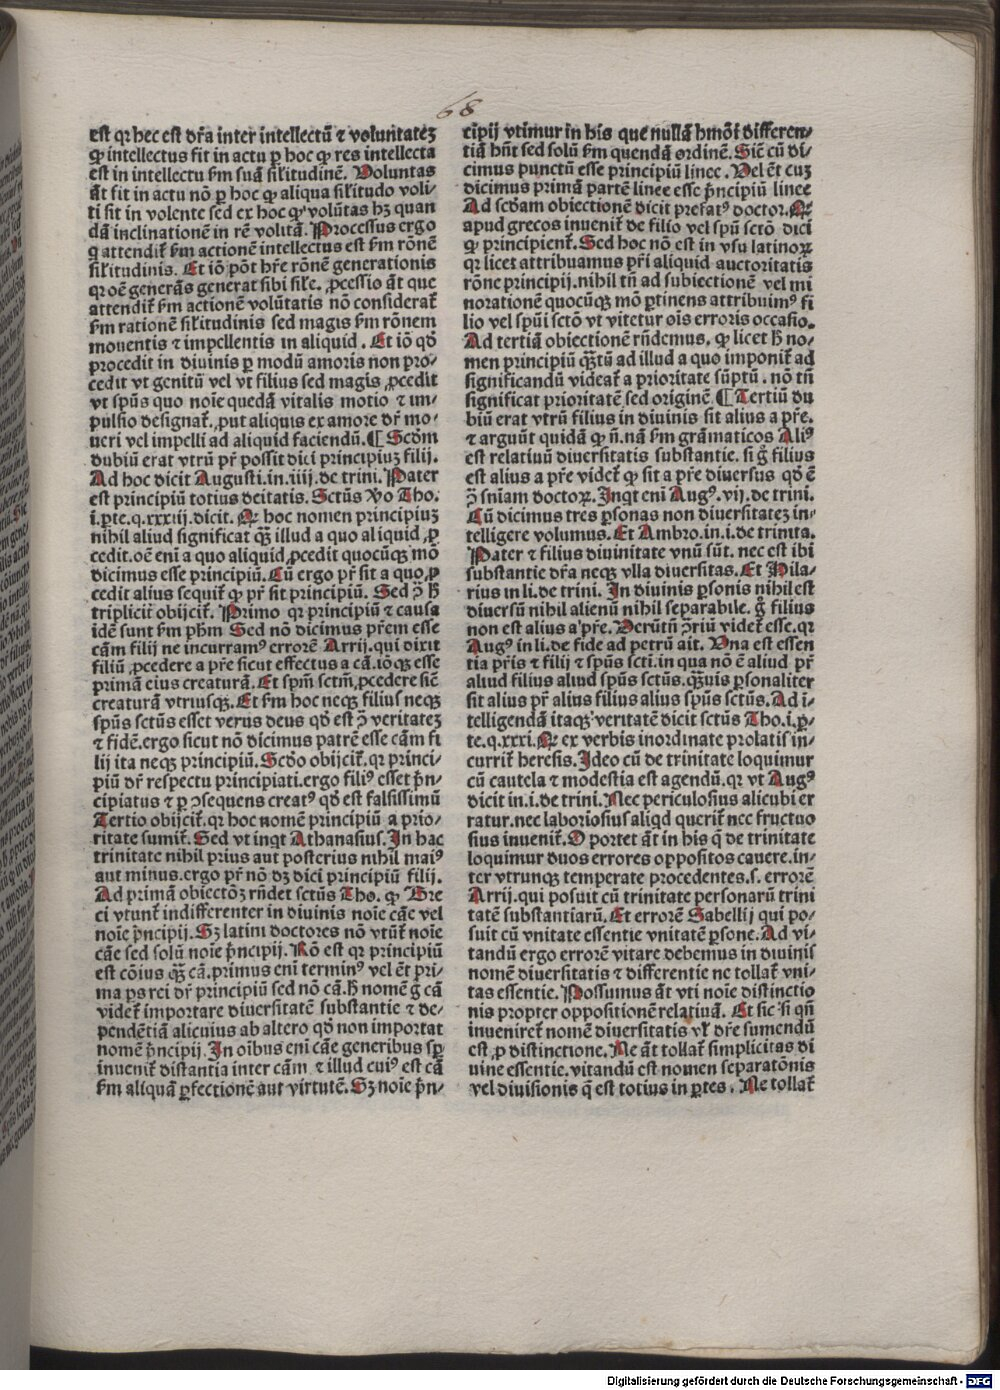 68
est qꝛ hec est dr̄a inter intellectū ⁊ voluntatē
ꝙ intellectus fit in actu ꝑ hoc ꝙ res intellecta
est in intellectu ẜm suā sil̄itudinē. Voluntas
āt fit in actu nō ꝑ hoc ꝙ aliqua sil̄itudo voli-
ti sit in volente sed ex hoc ꝙ volūtas hꝫ quan
dā inclinationē in rē volitā. Processus ergo
q attendit̄ ẜm actionē intellectus est ẜm rōnē
sil̄itudinis. Et iō pōt hr̄e rōnē generationis
qꝛ oē generās generat sibi sil̄e. ꝓcessio āt que
attendit̄ ẜm actionē volūtatis nō considerat̄
ẜm rationē sil̄itudinis sed magis ẜm rōnem
mouentis ⁊ impellentis in aliquid. Et iō qđ
procedit in diuinis ꝑ modū amoris non pro-
cedit vt genitū vel vt filius sed magis ꝓcedit
vt spūs quo noīe quedā vitalis motio ⁊ im-
pulsio designat̄. ꝓut aliquis ex amore dr̄ mo-
ueri vel impelli ad aliquid faciendū. ¶ Scđm
dubiū erat vtrū pr̄ possit dici principiuꝫ filij.
Ad hoc dicit Augusti. in .iiij. de trini. Pater
est principiū totius deitatis. Sctūs v̄o Tho.
i. ꝑte. q. xxxiij. dicit. Qꝛ hoc nomen principiuꝫ
nihil aliud significat qꝫ̄ illud a quo aliquid ꝓ
cedit. oē eni a quo aliquid ꝓcedit quocūqꝫ mō
dicimus esse principiū. Cū ergo pr̄ sit a quo ꝓ
cedit alius sequit̄ ꝙ pr̄ sit principiū. Sed ꝯ̄ h̄
triplicit̄ obijcit̄. Primo qꝛ principiū ⁊ causa
idē sunt ẜm ph̄m Sed nō dicimus pr̄em esse
cām filij ne incurramꝰ errorē Arrij. qui dixit
filiū ꝓcedere a pr̄e sicut effectus a cā. iōqꝫ esse
primā eius creaturā. Et spm̄ sctm̄ ꝓcedere sic̄
creaturā vtriusqꝫ. Et ẜm hoc neqꝫ filius neqꝫ
spūs sctūs esset verus deus qđ est ꝯ̄ veritateꝫ
⁊ fidē. ergo sicut nō dicimus patrē esse cām fi
lij ita neqꝫ principiū. Scđo obijcit̄. qꝛ princi-
piū dr̄ respectu principiati. ergo filiꝰ esset p̄n-
cipiatus ⁊ ꝑ ꝯsequens creatꝰ qđ est falsissimū
Tertio obijcit̄. qꝛ hoc nomē principiū a prio-
ritate sumit̄. Sed vt inqt Athanasiuſ. In hac
trinitate nihil prius aut posterius nihil maiꝰ
aut minus. ergo pr̄ nō dꝫ dici principiū filij.
Ad primā obiectōꝫ rn̄det sctūs Tho. ꝙ Gre
ci vtunt̄ indifferenter in diuinis noīe cāe vel
noīe p̄ncipij. Sꝫ latini doctores nō vtūt̄ noīe
cāe sed solū noīe p̄ncipij. Rō est qꝛ principiū
est cōius qꝫ̄ cā. primus eni terminꝰ vel ēt pri-
ma ps rei dr̄ principiū sed nō cā. h̄ nomē g̊ cā
videt̄ importare diuersitatē substantie ⁊ de-
pendētiā alicuius ab altero qđ non importat
nomē p̄ncipij. In oībus eni cāe generibus sꝑ
inuenit̄ distantia inter cām ⁊ illud cuiꝰ est cā
ẜm aliquā ꝑfectionē aut virtutē. Sꝫ noīe p̄n-
cipij vtimur in his que nullā hmōi differen-
tiā hn̄t sed solū ẜm quendā ordinē. Sic̄ cū di-
cimus punctū esse principiū linee. Vel ēt cuꝫ
dicimus primā partē linee esse p̄ncipiū linee
Ad scđam obiectionē dicit prefatꝰ doctor. Qꝛ
apud grecos inuenit̄ de filio vel spū sctō dici
ꝙ principient̄. Sed hoc nō est in vsu latinoꝝ
qꝛ licet attribuamus pr̄i aliquid auctoritatis
rōne principij. nihil tn̄ ad subiectionē vel mi
norationē quocūqꝫ mō ꝑtinens attribuimꝰ fi
lio vel spūi sctō vt vitetur oīs erroris occasio.
Ad tertiā obiectionē rn̄demus. ꝙ licet h̄ no-
men principiū qꝫ̄tū ad illud a quo imponit̄ ad
significandū videat̄ a prioritate sūptū. nō tn̄
significat prioritatē sed originē. ¶ Tertiū du
biū erat vtrū filius in diuinis sit alius a pr̄e.
⁊ arguūt quidā ꝙ n̄. nā ẜm grāmaticos Aliꝰ
est relatiuū diuersitatis substantie. si g̊ filius
est alius a pr̄e videt̄ ꝙ sit a pr̄e diuersus qđ ē
ꝯ̄ sn̄iam doctoꝝ. Inqt eni Augꝰ. vij. de trini.
Cū dicimus tres ꝑsonas non diuersitateꝫ in-
telligere volumus. Et Ambro. in .i. de trinita.
Pater ⁊ filius diuinitate vnū sūt. nec est ibi
substantie dr̄a neqꝫ vlla diuersitas. Et Hila-
rius in li. de trini. In diuinis ꝑsonis nihil est
diuersū nihil alienū nihil separabile. g̊ filius
non est alius a pr̄e. Verūtn̄ ꝯ̄riū videt̄ esse. qꝛ
Augꝰ in li. de fide ad petrū ait. Vna est essen
tia pr̄is ⁊ filij ⁊ spūs scti. in qua nō ē aliud pr̄
aliud filius aliud spūs sctūs. qꝫuis ꝑsonaliter
sit alius pr̄ alius filius alius spūs sctūs. Ad ī-
telligendā itaqꝫ veritatē dicit sctūs Tho. i. ꝑ-
te. q. xxxi. Qꝛ ex verbis inordinate prolatis in-
currit̄ heresis. Ideo cū de trinitate loquimur
cū cautela ⁊ modestia est agendū. qꝛ vt Augꝰ
dicit in .i. de trini. Nec periculosius alicubi er
ratur. nec laboriosius aliqd querit̄ nec fructuo
sius inuenit̄. Oportet āt in his q̄ de trinitate
loquimur duos errores oppositos cauere. in-
ter vtrunqꝫ temperate procedentes. s. errorē
Arrij. qui posuit cū trinitate personarū trini
tatē substantiarū. Et errorē Sabellij qui po-
suit cū vnitate essentie vnitatē ꝑsone. Ad vi-
tandū ergo errorē vitare debemus in diuinis
nomē diuersitatis ⁊ differentie ne tollat̄ vni-
tas essentie. Possumus āt vti noīe distinctio
nis propter oppositionē relatiuā. Et sic si qn̄
inueniret̄ nomē diuersitatis vl̄ dr̄e sumendū
est ꝓ distinctione. Ne āt tollat̄ simplicitas di
uine essentie. vitandū est nomen separatōnis
vel diuisionis q̄ est totius in ꝑtes. Ne tollat̄
Digitalisierung gefördert durch die Deutsche Forschungsgemeinschaft - DFG